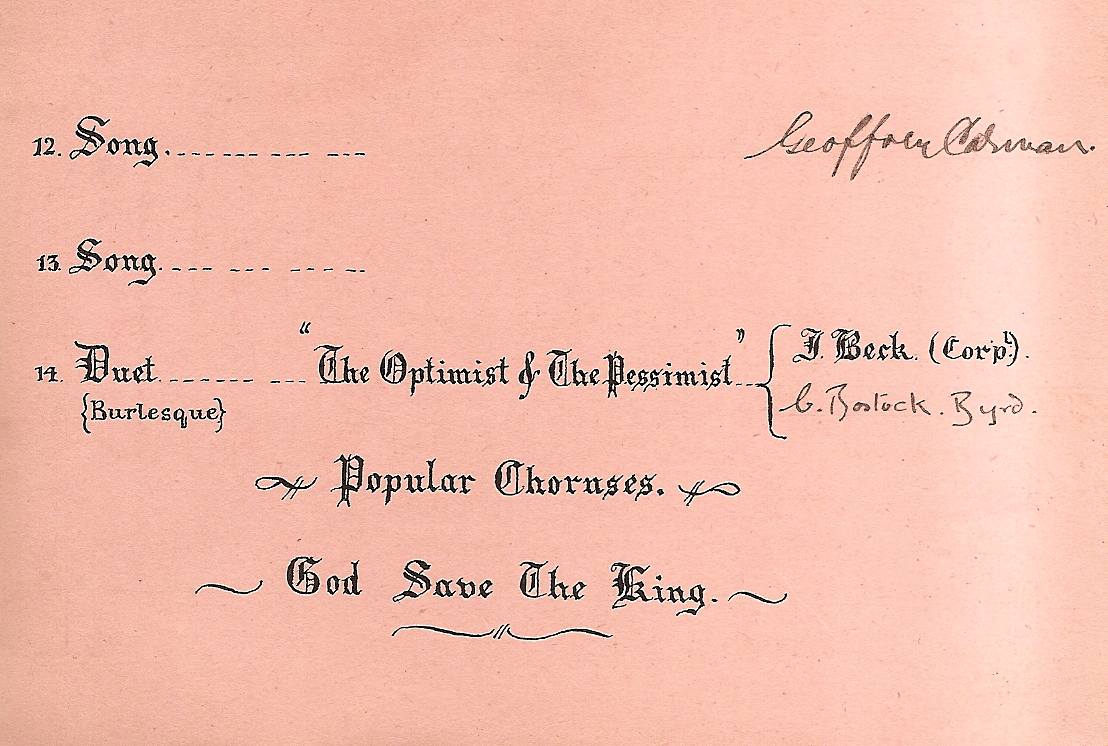 12. Song. Geoffrey Colman.
13. Song.
14. Duet "The Optimist & The Pessimist" J. Beck. (Corpl).
{Burlesque} C. Bostock. Byrd.
Popular Choruses.
God Save The King.